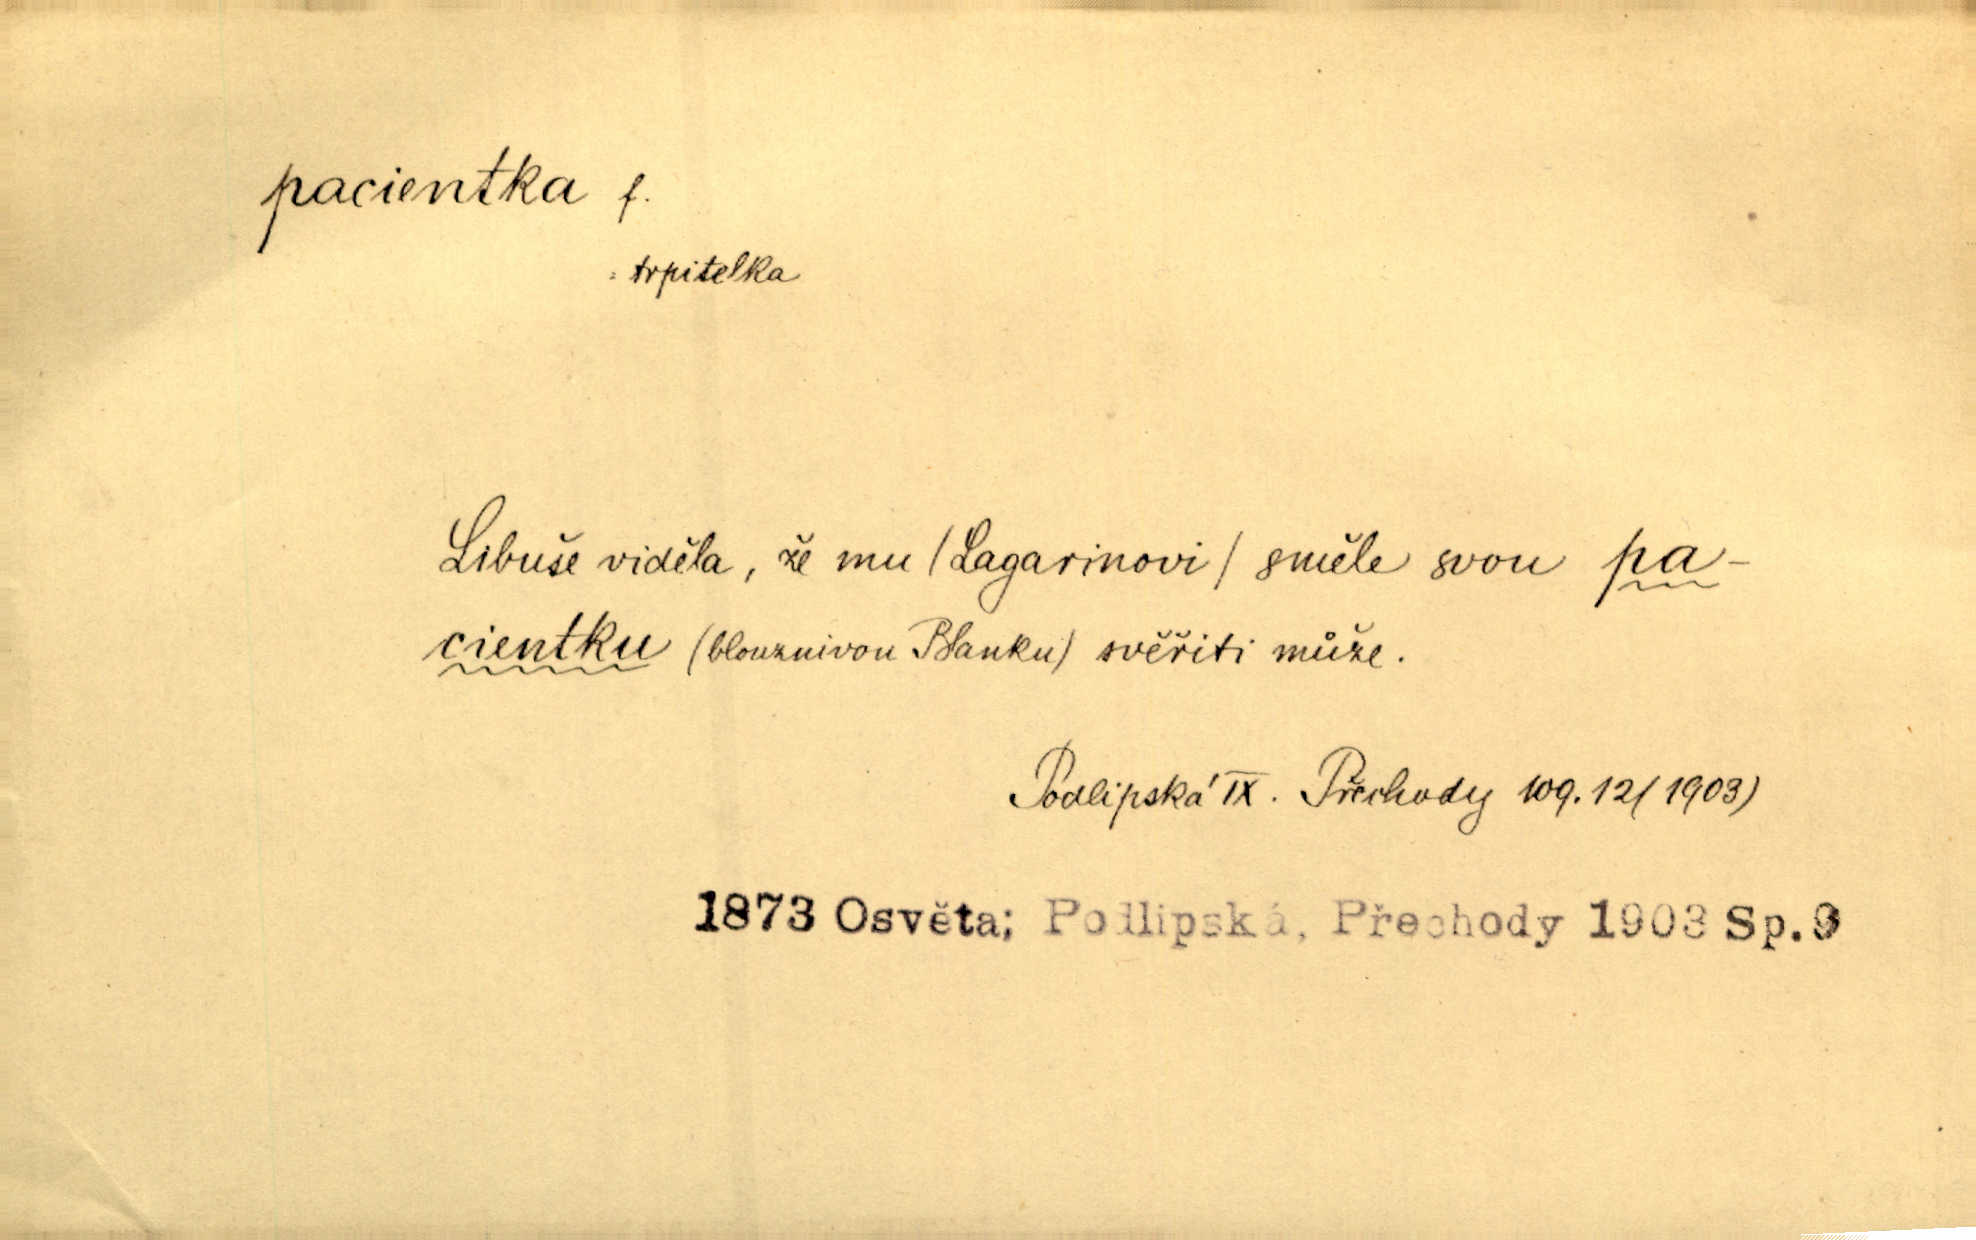 pacientka f.
: trpitelka
Libuše viděla, že mu /Lagarinovi/ směle svou pa-
cientku (blouznivou Blanku) svěřiti může.
Podlipská IX. Přechody 109.12 (1903)
1873 Osvěta; Podlipská, Přechody 1903 Sp.9